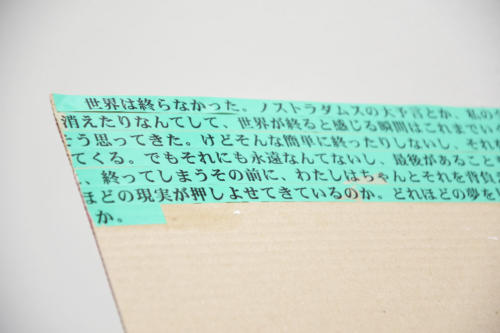 世界は終らなかった。ノストラダムスの大予言とか、私の
消えたりなんてして、世界が終ると感じる瞬間はこれまでい
こう思ってきた。けどそんな簡単に終ったりしないし、それ
てくる。でもそれにも永遠なんてないし、最後があること
、終ってしまうその前に、わたしはちゃんとそれを背負
ほどの現実が押しよせてきているのか。どれほどの夢を
か。